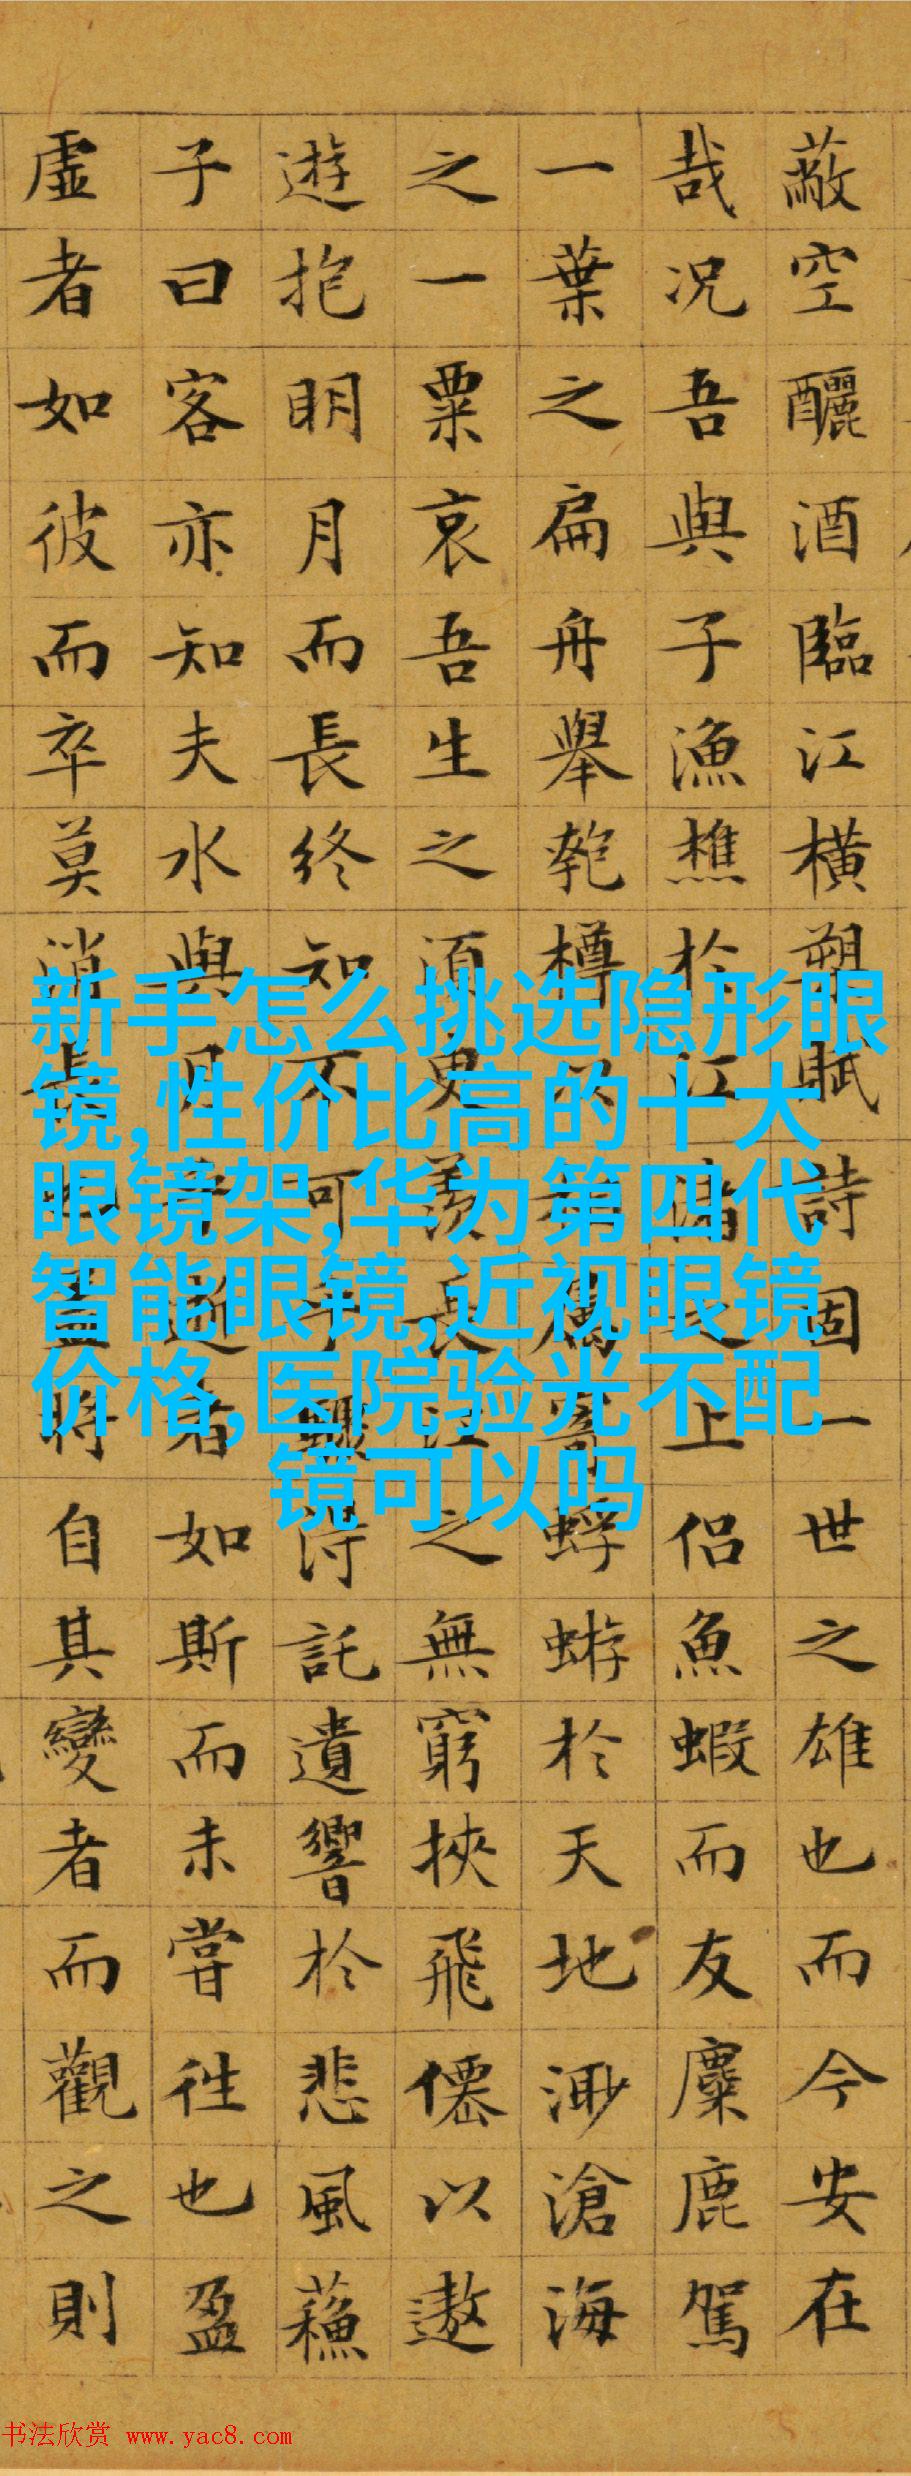 蔽空釃酒臨江橫槊賦詩固一世之雄也而今安在
哉况吾與子漁樵於江渚之上侣魚蝦而友麋鹿駕
一葉之扁舟舉匏樽以相屬寄蜉蝣於天地渺滄海
之一粟哀吾生之須臾羡長江之無窮挾飛僊以遨
遊抱明月而長終知不可乎驟得託遺響於悲風蘓
子曰客亦知夫水與月乎逝者如斯而未嘗往也盈
虛者如彼而卒莫消長也蓋將自其變者而觀之則
新手怎么挑选隐形眼
镜,性价比高的十大
眼镜架,华为第四代
智能眼镜,近视眼镜
价格,医院验光不配
镜可以吗
书法欣赏 www.yac8.com